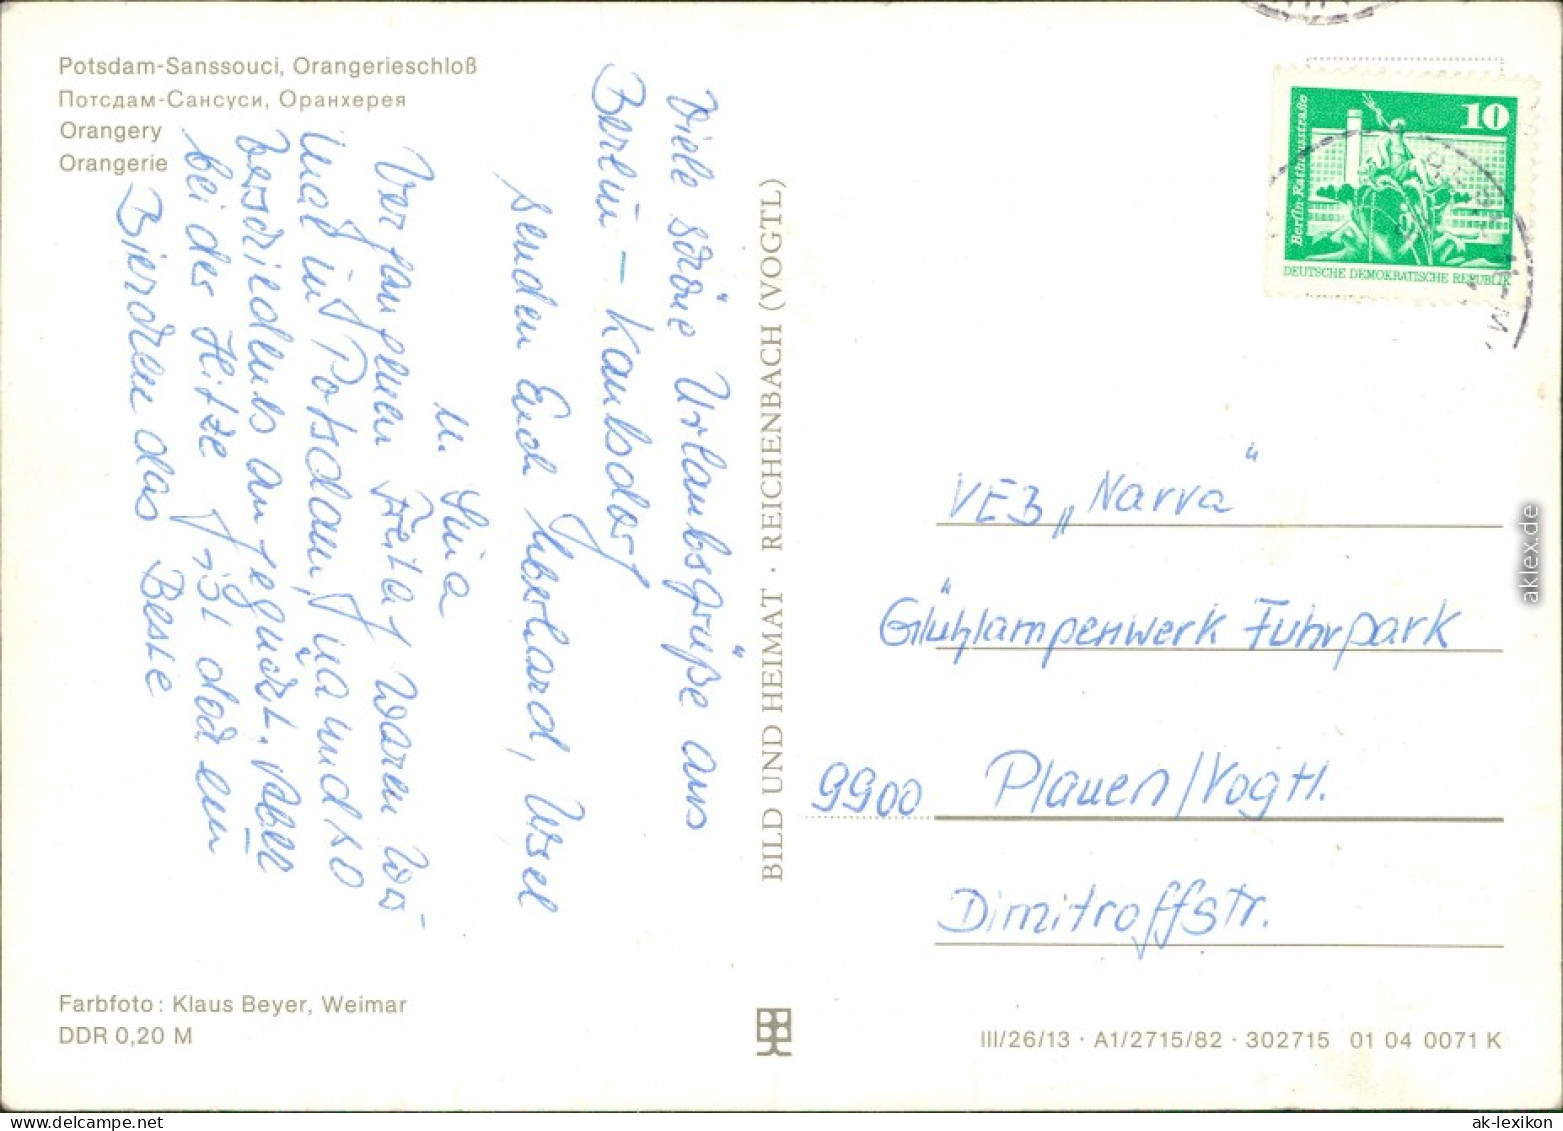 Potsdam-Sanssouci, Orangerieschloß
Потсдам-Сансуси, Оранжерея
Orangery
Orangerie
Viele schöne Urlaubsgrüße aus
Berlin – Kaulsdorf
senden Euch Eberhard, Ursel
u. Silvia
Vergangenen Freitag waren wir
mal in Potsdam,
bei der Hitze ist doch ein
Bierchen das Beste
BILD UND HEIMAT · REICHENBACH (VOGTL)
10
Berlin, Rathausstraße
DEUTSCHE DEMOKRATISCHE REPUBLIK
VEB „Narva“
Glühlampenwerk Fuhrpark
9900 Plauen/Vogtl.
Dimitroffstr.
Farbfoto: Klaus Beyer, Weimar
DDR 0,20 M
III/26/13 · A1/2715/82 · 302715 01 04 0071 K
aklex.de
ak-lexikon